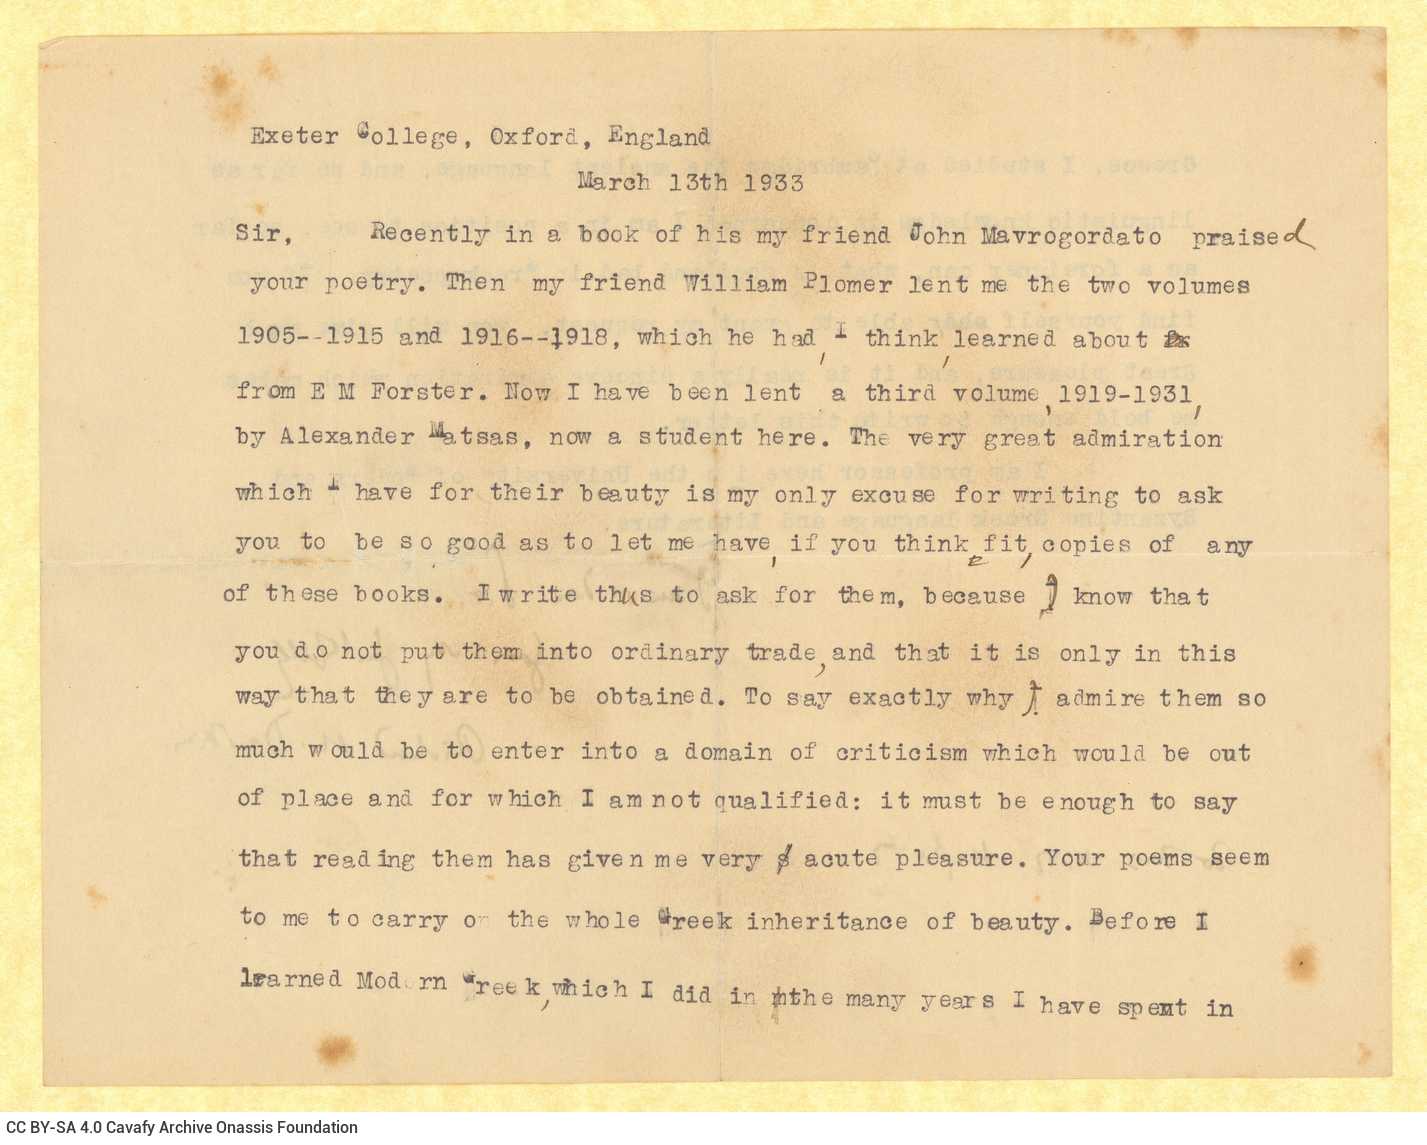 Exeter College, Oxford, England
March 13th 1933
Sir, Recently in a book of his my friend John Mavrogordato praised
your poetry. Then my friend William Plomer lent me the two volumes
1905--1915 and 1916--1918, which he had, I think, learned about
from E M Forster. Now I have been lent a third volume, 1919-1931,
by Alexander Matsas, now a student here. The very great admiration
which I have for their beauty is my only excuse for writing to ask
you to be so good as to let me have, if you think fit, copies of any
of these books. I write thus to ask for them, because I know that
you do not put them into ordinary trade, and that it is only in this
way that they are to be obtained. To say exactly why I admire them so
much would be to enter into a domain of criticism which would be out
of place and for which I am not qualified: it must be enough to say
that reading them has given me very acute pleasure. Your poems seem
to me to carry on the whole Greek inheritance of beauty. Before I
learned Modern Greek, which I did in the many years I have spent in
CC BY-SA 4.0 Cavafy Archive Onassis Foundation